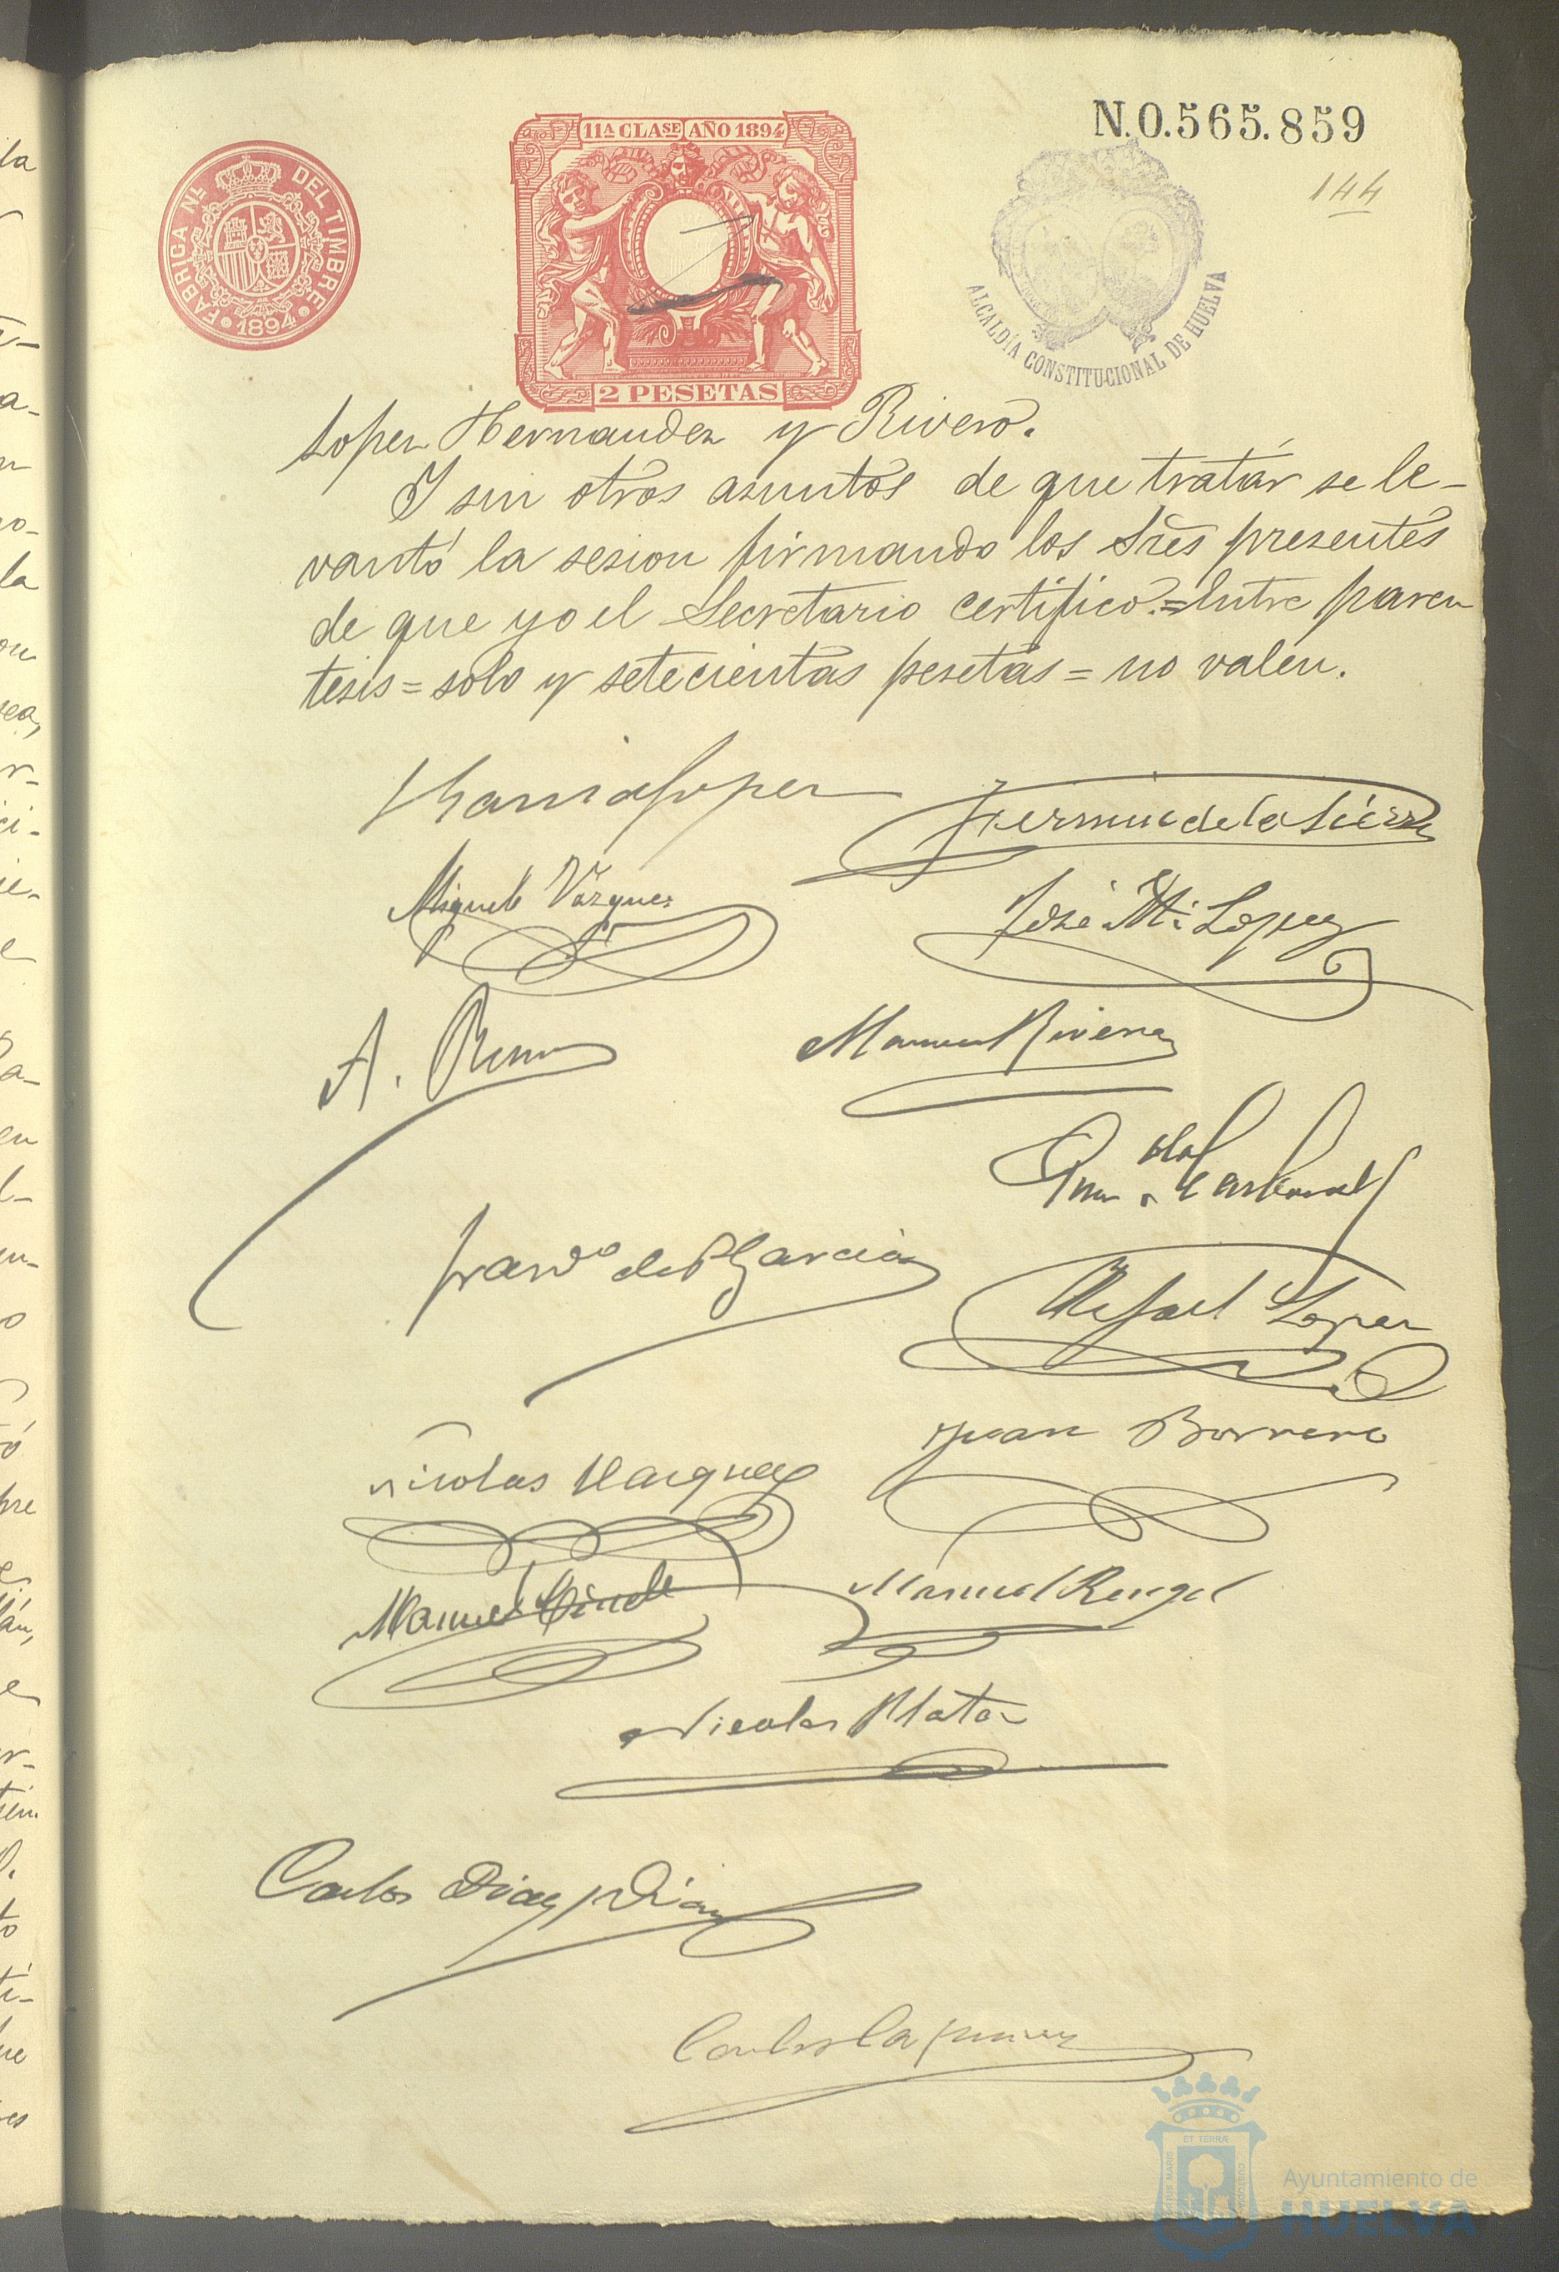 N.0.565.859
144
11ª CLASE AÑO 1894
FABRICA NL. DEL TIMBRE
1894
2 PESETAS
ALCALDÍA CONSTITUCIONAL DE HUELVA
Lopez Hernandez y Rivero.
Y sin otros asuntos de que tratár se le-
vantó la sesion firmando los Sres presentes
de que yo el Secretario certifico.=Entre paren
tesis=solo y setecientas pesetas=no valen.
Garcia Lopez
de la Sierra
Miguel Vázquez
José Mª Lopez
A.
Manuel Rivera
Garcia
Rafael Lopez
Juan Borrero
Nicolas Vazquez
Manuel
Manuel Rengel
Nicolas Mata
Carlos Diaz y Diaz
Carlos
ET TERRÆ
Ayuntamiento de
HUELVA